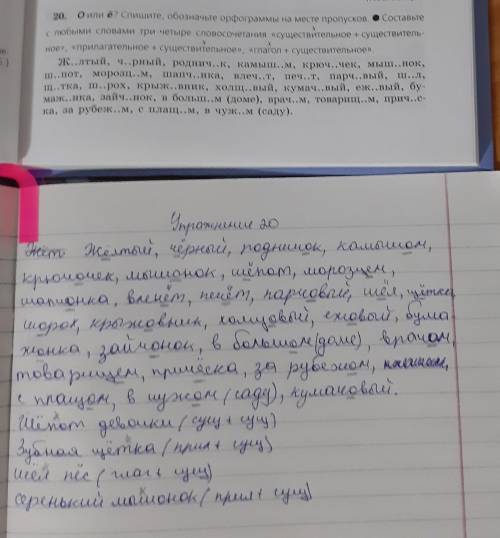 20. О или ё? Спишите, обозначьте орфограммы на месте пропусков. ● Составьте
с любыми словами три четыре словосочетания «существительное + существитель-
ное», «прилагательное + существительное», «глагол + существительное».
Ж..лтый, ч..рный, роднич..к, камыш..м, крюч..чек, мыш..нок,
ш..пот, морозц..м, шапч..нка, влеч..т, печ..т, парч..вый, ш..л,
щ..тка, ш..рох, крыж..вник, холщ..вый, кумач..вый, еж..вый, бу-
маж..нка, зайч..нок, в больш..м (доме), врач..м, товарищ..м, прич..с-
ка, за рубеж..м, с плащ..м, в чуж..м (саду).
Упражнение 20
Жёлтый, чёрный, родничок, камышом,
крючочек, мышонок, шёпот, морозцем,
шапчонка, влечёт, печёт, парчовый, шёл, щётка
шорох, крыжовник, холщовый, ежовый, бума
жонка, зайчонок, в большом (доме), врачом,
товарищем, причёска, за рубежом,
с плащом, в чужом (саду), кумачовый.
Шёпот девочки (сущ + сущ)
Зубная щётка (прил + сущ)
Шёл пёс (глаг + сущ)
Серенький мышонок (прил + сущ)